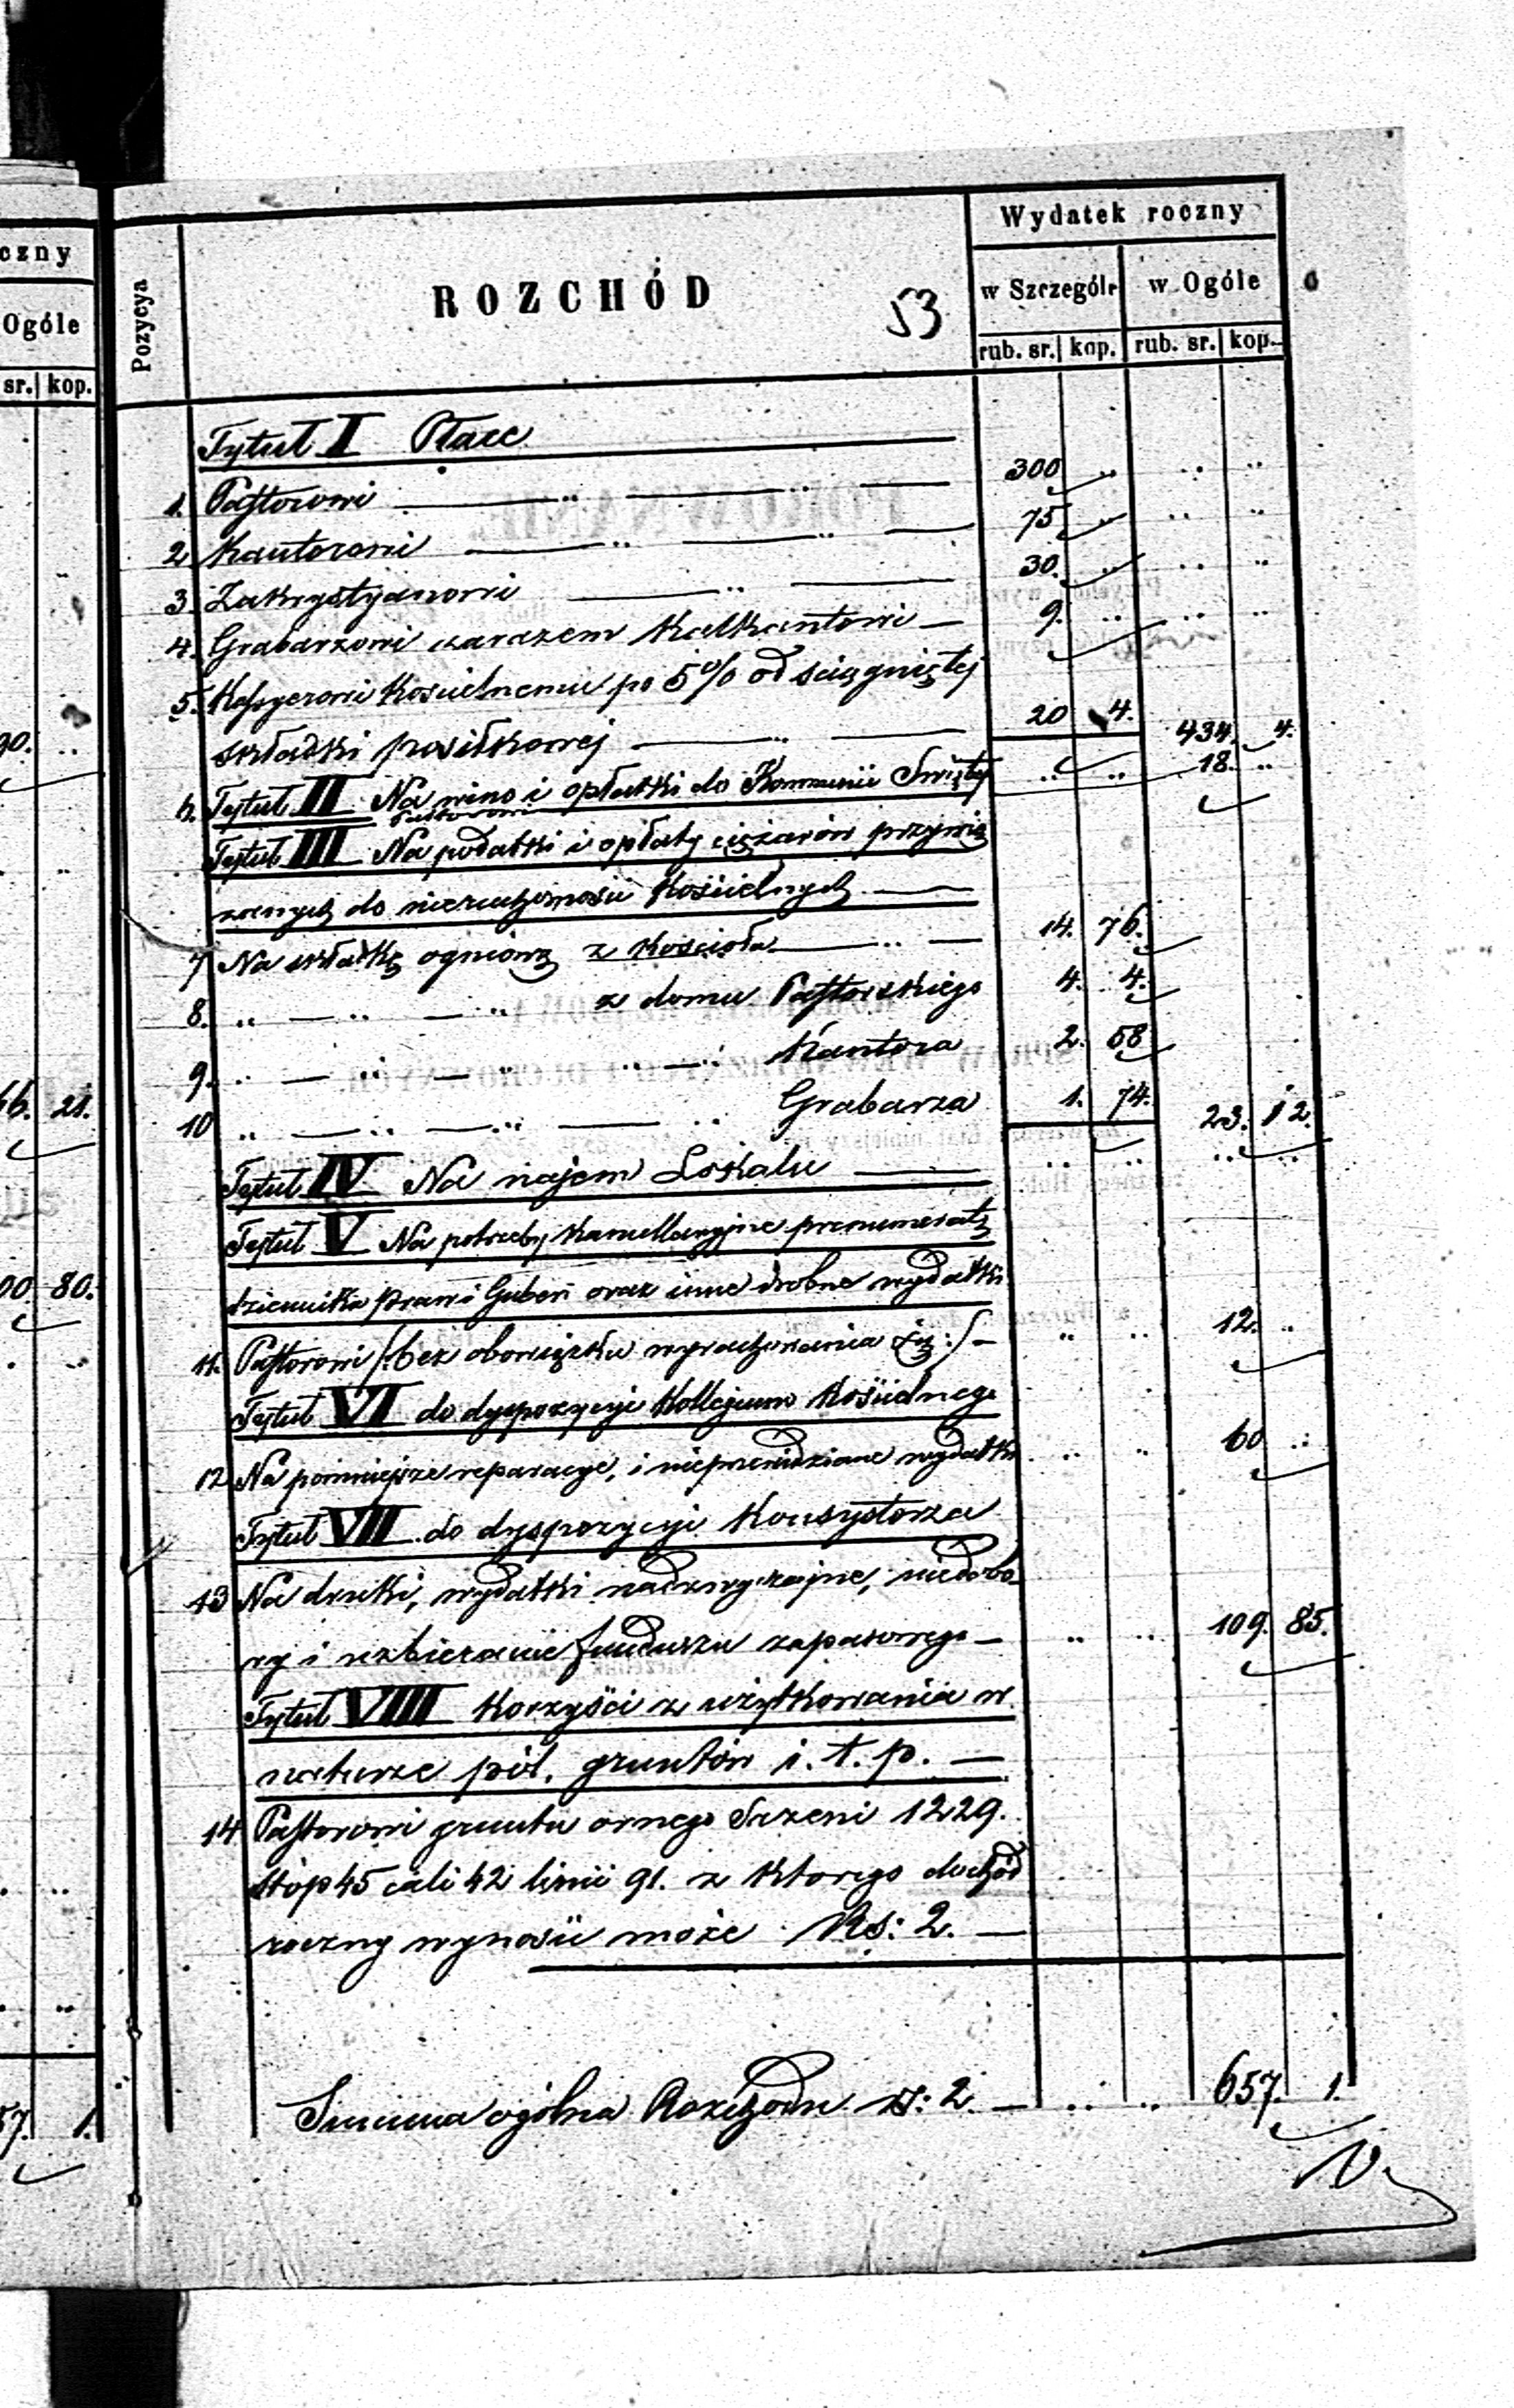 czny
Ogóle
sr. kop.
90. ..
66. 21.
00 80.
57. 1.
Pozycya
ROZCHÓD
53
Wydatek roczny
w Szczególe w Ogóle
rub. sr. kop. rub. sr. kop.
Tytuł I Płace
1. Pastorowi 300 .. .. ..
2 Kantorowi 75 .. .. ..
3. Zakrystyanowi 30. .. .. ..
4. Grabarzowi zarazem Kalkantowi 9. .. .. ..
5. Kassyerowi Kościelnemu po 5% od ściągniętej
składki posiłkowej 20 4. 434. 4.
6. Tytuł II Na wino i opłatki do Komunii Świętej .. .. 18. ..
Pastorowi
Tytuł III Na podatki i opłaty ciężarów przywią
zanych do nieruchomości Kościelnych
7 Na składkę ogniową z Kościoła 14. 76.
8. .. .. .. z domu Pastorskiego 4. 4.
9. .. .. .. .. Kantora 2. 58
10 .. .. .. .. Grabarza 1. 74. 23. 12.
Tytuł IV Na najem Lokalu .. .. .. ..
Tytuł V Na potrzeby Kancellaryjne prenumeratę
dziennika praw i Gubern oraz inne drobne wydatki
11. Pastorowi /:bez obowiązku wyrachowania się:/ .. .. 12. ..
Tytuł VI do dyspozycyi Kollegium Kościelnego
12 Na pomniejsze reparacye, i nieprzewidziane wydatki .. .. 60 ..
Tytuł VII do dyspozycyi Konsystorza
13 Na druki, wydatki nadzwyczajne, niedobo-
ry i uzbieranie funduszu zapasowego .. .. 109. 85.
Tytuł VIII Korzyści z użytkowania w
naturze pól, gruntów i. t. p.
14 Pastorowi gruntu ornego Sążeni 1229.
stóp 45 cali 42 linii 91. z którego dochód
roczny wynosić może Rs: 2.
Summa ogólna Rozchodu rs: 2. .. .. 657. 1.